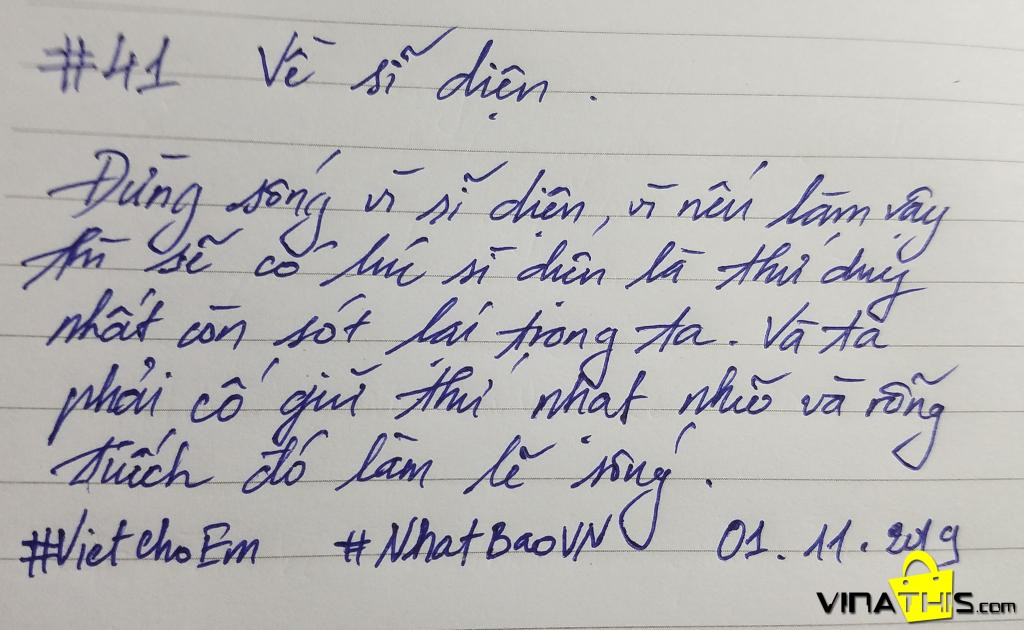 #41 Về sĩ diện.
Đừng sống vì sĩ diện, vì nếu làm vậy
thì sẽ có lúc sĩ diện là thứ duy
nhất còn sót lại trong ta. Và ta
phải cố giữ thứ nhạt nhẽo và rỗng
tuếch đó làm lẽ sống.
#VietchoEm #NhatBaoVN 01.11.2019
VINATHIS.com